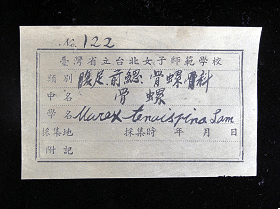 No. 122
臺灣省立台北女子師範學校
類別 腹足.前鰓.骨螺科
中名 骨螺
學名 Murex tenuispina Lam
採集地 採集時 年 月 日
附記